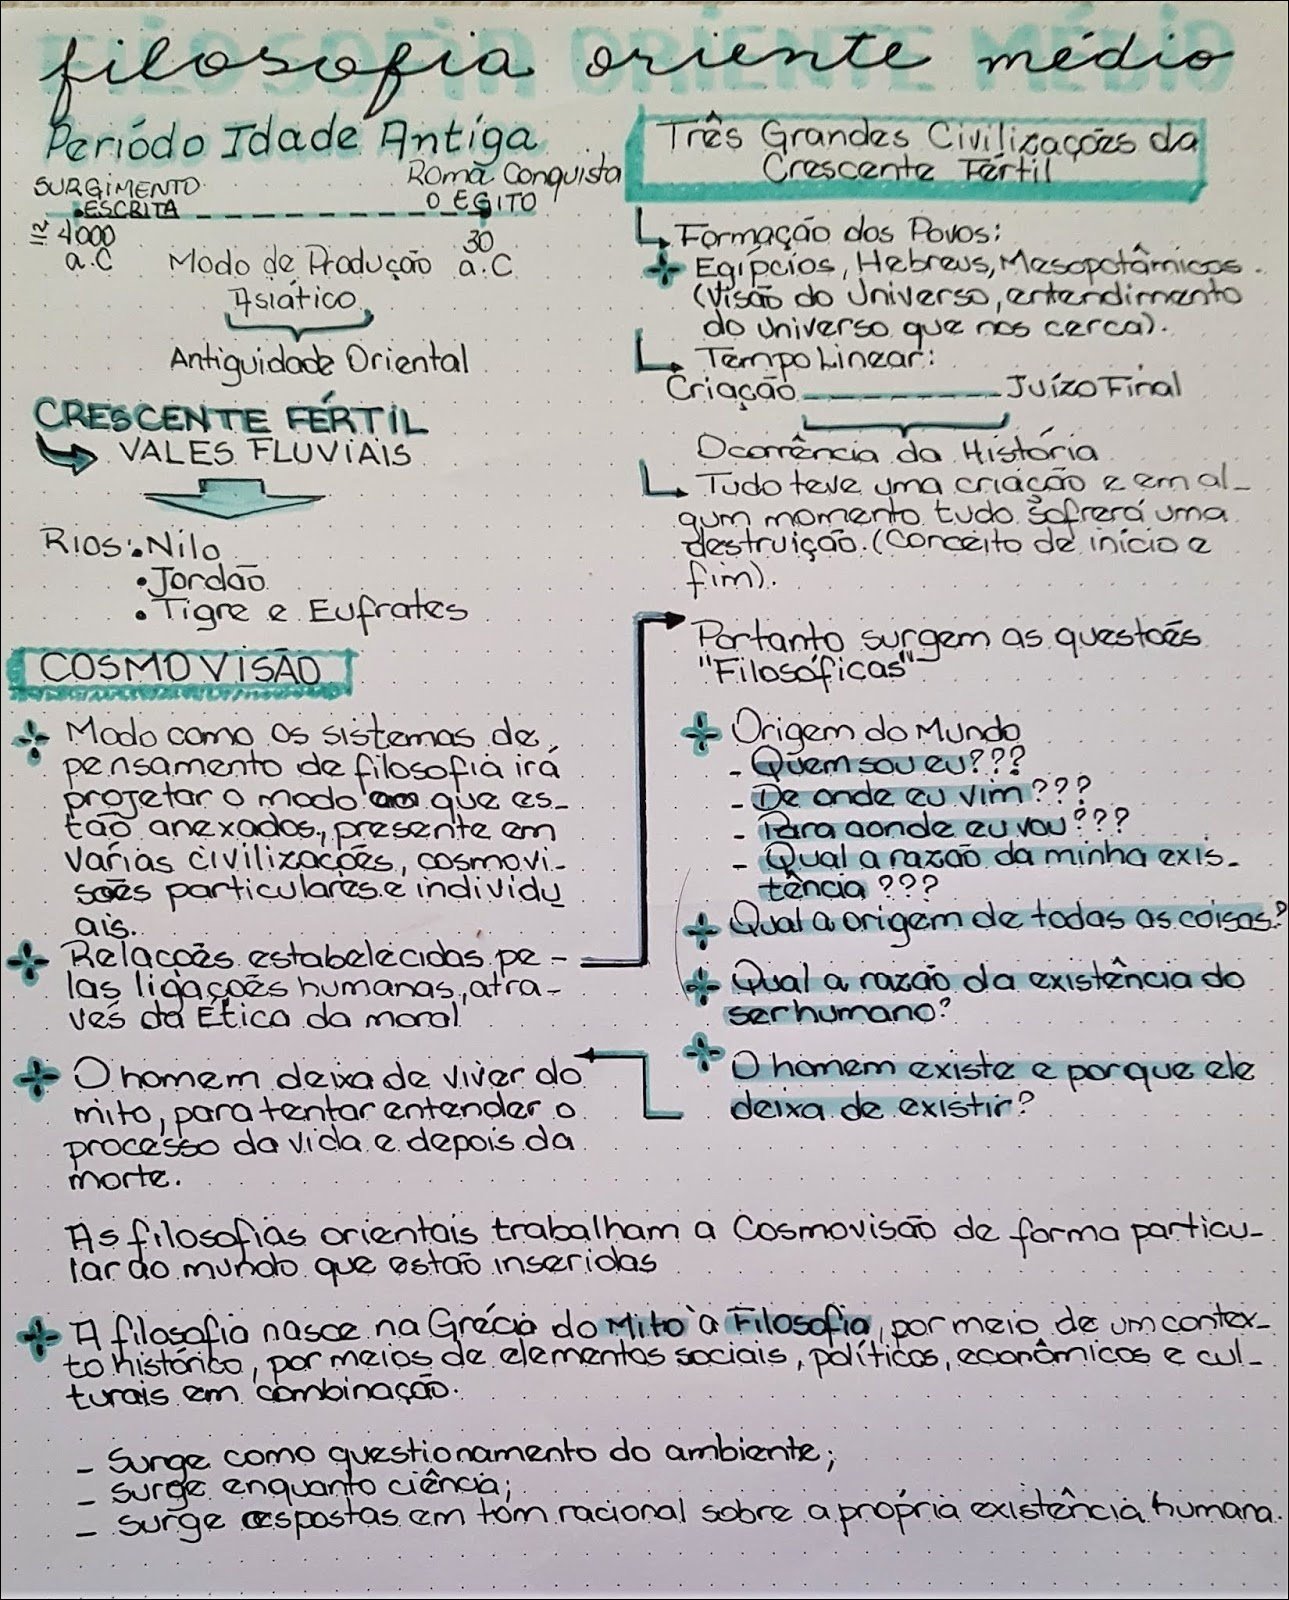 filosofia oriente médio
Período Idade Antiga
SURGIMENTO
ESCRITA
Roma Conquista
O EGITO
≅ 4000
a.C
30
a.C
Modo de Produção
Asiático
Antiguidade Oriental
CRESCENTE FÉRTIL
VALES FLUVIAIS
Rios: • Nilo
• Jordão
• Tigre e Eufrates
COSMOVISÃO
Modo como os sistemas de
pensamento de filosofia irá
projetar o modo que es-
tão anexados, presente em
várias civilizações, cosmovi-
sões particulares e individu
ais.
Relações estabelecidas pe-
las ligações humanas, atra-
vés da Ética da moral
O homem deixa de viver do
mito, para tentar entender o
processo da vida e depois da
morte.
Três Grandes Civilizações da
Crescente Fértil
Formação dos Povos:
Egípcios, Hebreus, Mesopotâmicos.
(Visão do Universo, entendimento
do universo que nos cerca).
Tempo Linear:
Criação _ _ _ _ _ _ _ _ Juízo Final
Ocorrência da História
Tudo teve uma criação e em al-
gum momento tudo sofrerá uma
destruição. (Conceito de início e
fim).
Portanto surgem as questões
"Filosóficas"
Origem do Mundo
- Quem sou eu???
- De onde eu vim???
- Para aonde eu vou???
- Qual a razão da minha exis-
tência???
Qual a origem de todas as coisas?
Qual a razão da existência do
ser humano?
O homem existe e porque ele
deixa de existir?
As filosofias orientais trabalham a Cosmovisão de forma particu-
lar do mundo que estão inseridas
A filosofia nasce na Grécia do Mito à Filosofia, por meio de um contex-
to histórico, por meios de elementos sociais, políticos, econômicos e cul-
turais em combinação.
- Surge como questionamento do ambiente;
- surge enquanto ciência;
- surge respostas em tom racional sobre a própria existência humana.